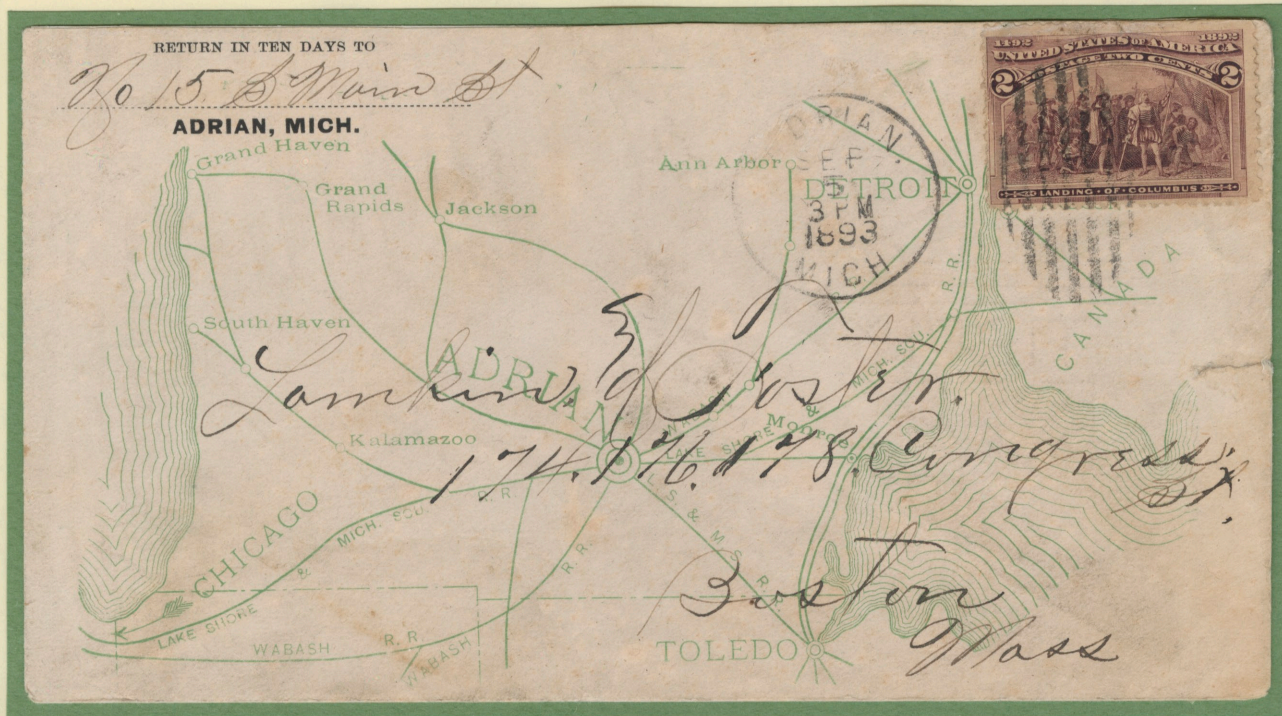 RETURN IN TEN DAYS TO
No 15 S Main St
ADRIAN, MICH.
1492 1892
UNITED STATES OF AMERICA
POSTAGE TWO CENTS
2 2
LANDING · OF · COLUMBUS
DRIAN.
SEP
5
3 PM
1893
MICH
Grand Haven
Grand
Rapids
Jackson
Ann Arbor
DETROIT
CANADA
South Haven
ADRIAN
Kalamazoo
Monroe
CHICAGO
TOLEDO
LAKE SHORE & MICH. SOU. R.R.
WABASH R.R.
WABASH
R.R.
WABASH
LAKE SHORE & MICH. SOU. R.R.
L. S. & M. S. R.R.
Lamkin & Foster.
174. 176. 178. Congress.
St.
Boston
Mass